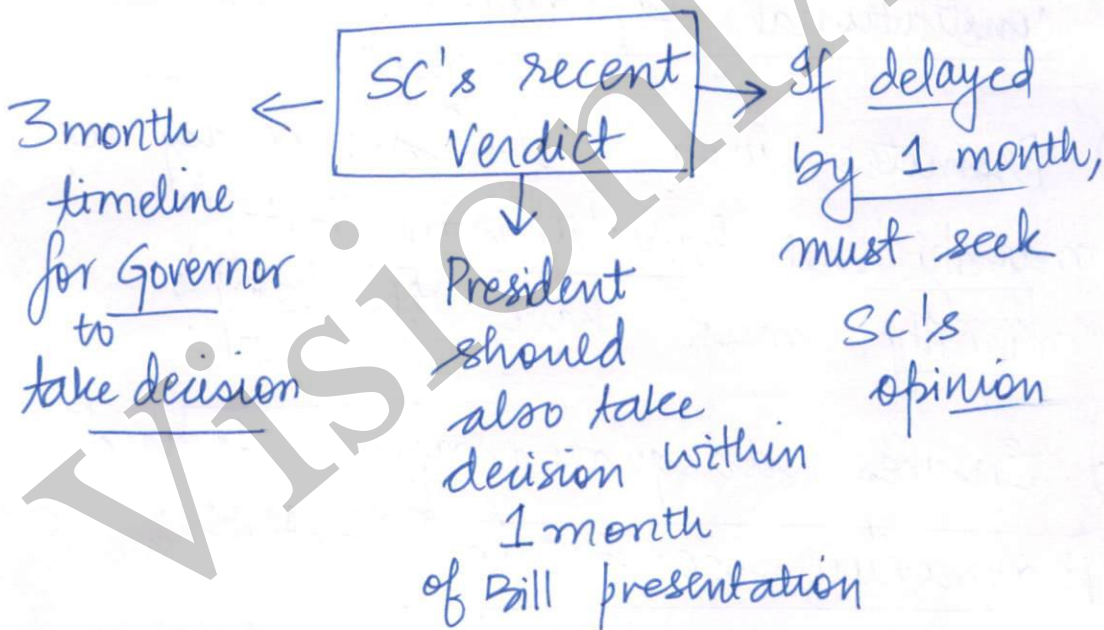 SC's recent
Verdict
3month
timeline
for Governor
to
take decision
President
should
also take
decision within
1 month
of Bill presentation
If delayed
by 1 month,
must seek
SC's
opinion
Vision